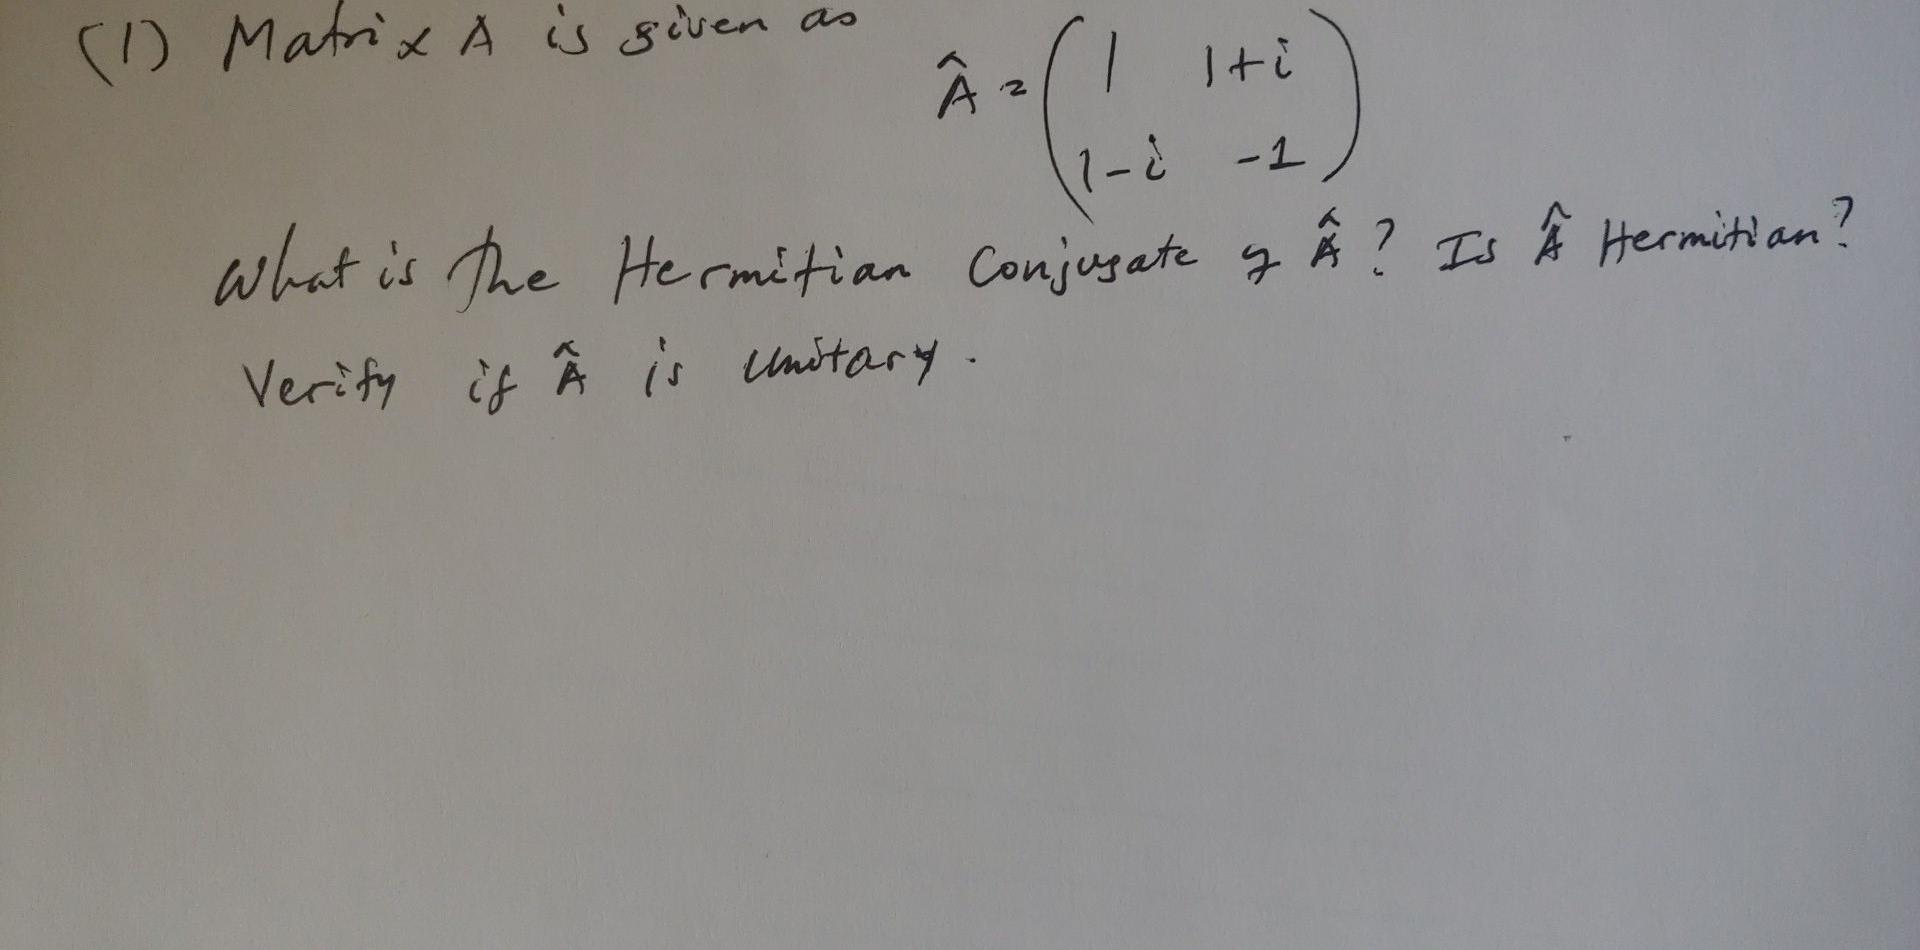 (1) Matrix A is given as
Â = ( 1 1+i
1-i -1 )
What is the Hermitian Conjugate of Â? Is Â Hermitian?
Verify if Â is unitary.